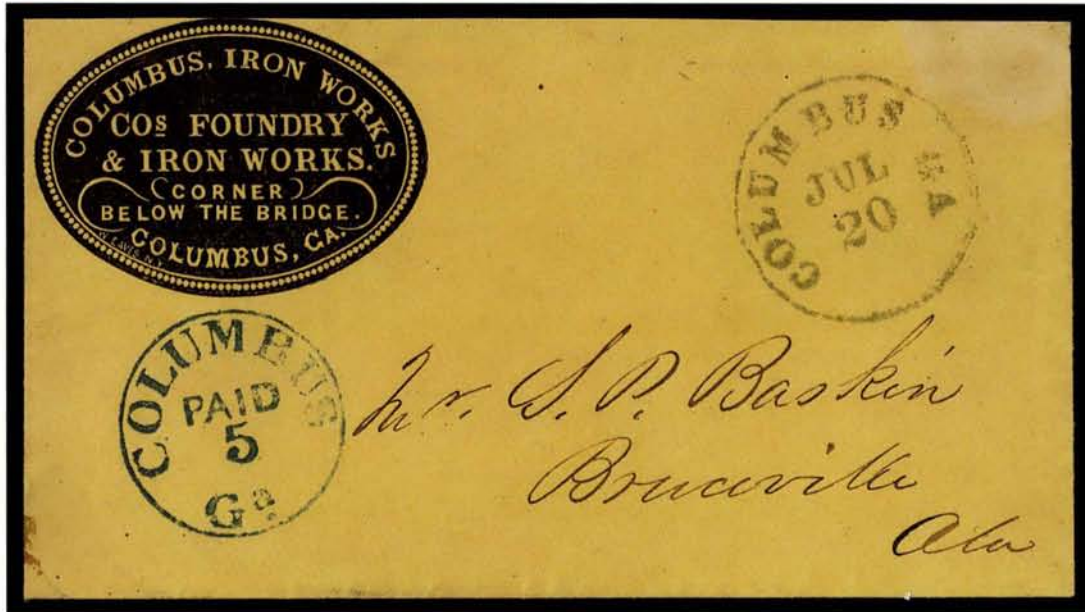 COLUMBUS, IRON WORKS
COs FOUNDRY
& IRON WORKS.
CORNER
BELOW THE BRIDGE.
COLUMBUS, GA.
COLUMBUS GA
JUL
20
COLUMBUS
PAID
5
Ga
Mr. S. P. Baskin
Bruceville
Ala